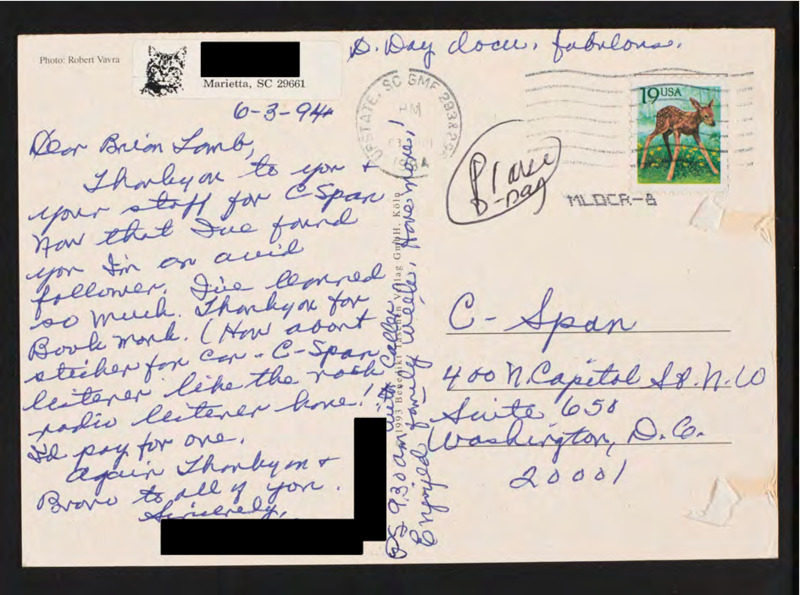 Photo: Robert Vavra
Marietta, SC 29661
D. Day docu. fabulous.
6-3-94
Dear Brian Lamb,
Thankyou to you +
your staff for C-Span
Now that I've found
you I'm an avid
follower. I've learned
so much. Thankyou for
Book mark. (How about
sticker for car - C-Span
listener like the rock
radio listener have!!
I'd pay for one.
Again Thankyou +
Bravo to all of you.
Sincerely,
PS 9:30 am with Collor
Enjoyed family week, have more!
1993 Benedikt Taschen Verlag GmbH, Köln
UPSTATE, SC GMF
PM
19 USA
D-Day
MLOCR-8
C-Span
400 N. Capitol St. N.W
Suite 650
Washington, D.C.
20001